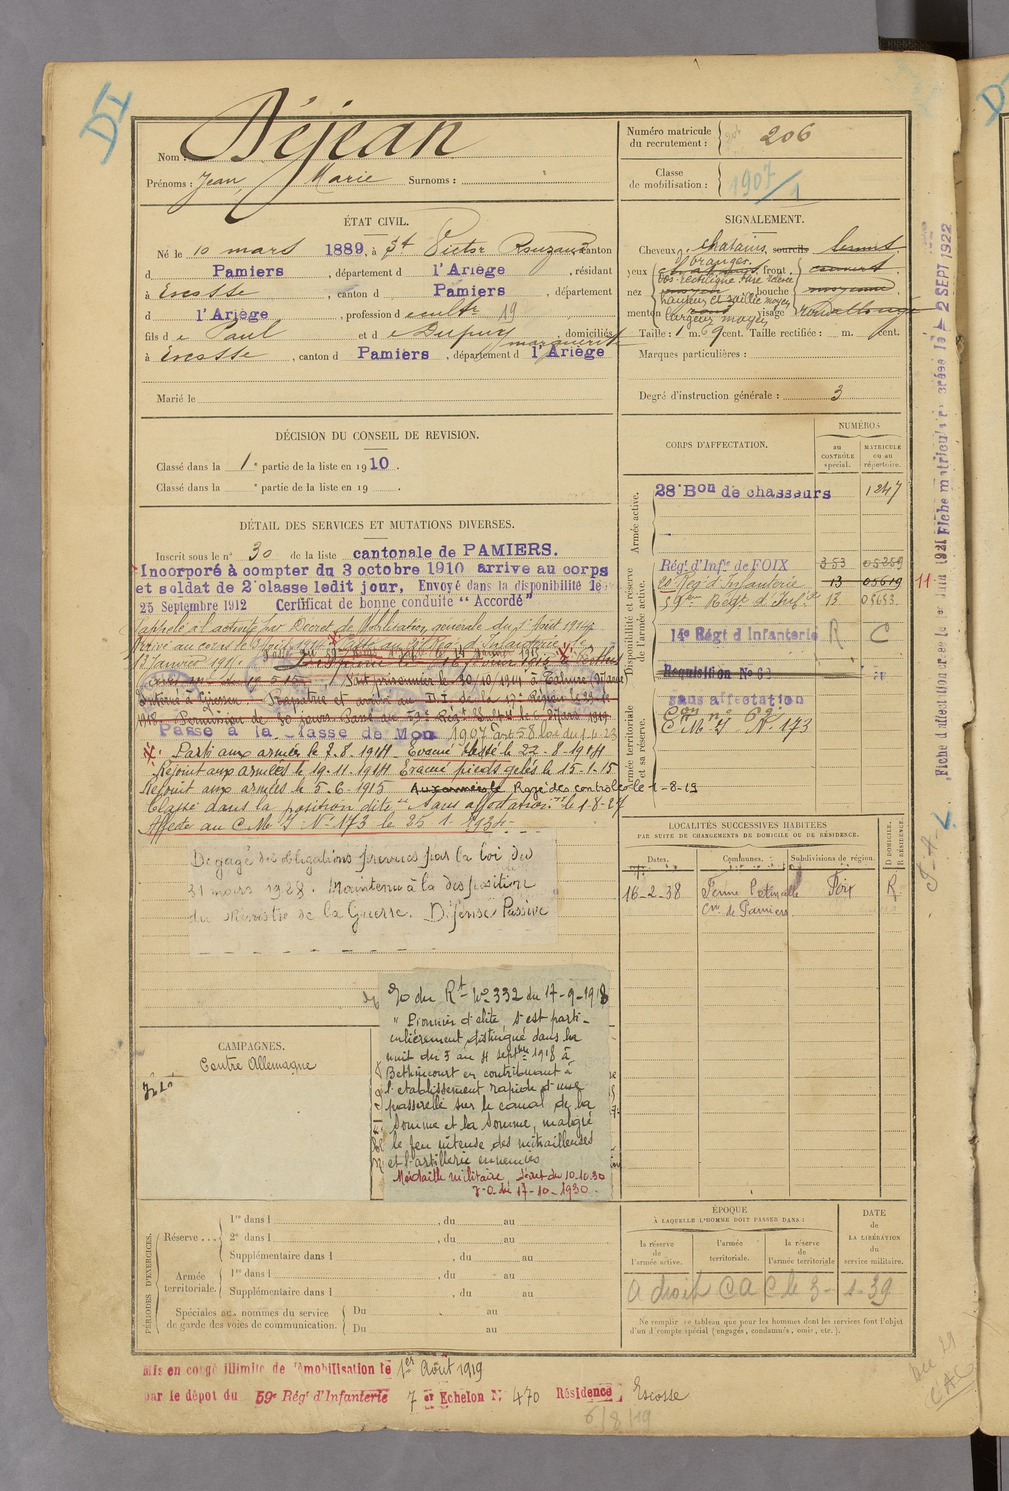 DI
Nom : Déjean
Prénoms : Jean Marie Surnoms :
Numéro matricule du recrutement : 206
Classe de mobilisation : 1907/1
ÉTAT CIVIL.
Né le 10 mars 1889, à St Victor Rouzaud canton
d Pamiers, département d l'Ariège, résidant
à Escosse, canton d Pamiers, département
d l'Ariège, profession d cultr 19
fils de Paul et de Dupuy marguerite, domiciliés
à Escosse, canton d Pamiers, département d l'Ariège
Marié le
SIGNALEMENT.
Cheveux chatains, sourcils
yeux oranges, front
nez dos rectiligne base relevée, bouche moyenne
hauteur et saillie moyen
menton rond visage rond allongé
largeur moyen
Taille : 1 m. 69 cent. Taille rectifiée : m. cent.
Marques particulières :
Degré d'instruction générale : 3
DÉCISION DU CONSEIL DE REVISION.
Classé dans la 1e partie de la liste en 1910.
Classé dans la e partie de la liste en 19 .
DÉTAIL DES SERVICES ET MUTATIONS DIVERSES.
Inscrit sous le n° 30 de la liste cantonale de PAMIERS.
Incorporé à compter du 3 octobre 1910 arrive au corps
et soldat de 2e classe ledit jour, Envoyé dans la disponibilité le
25 Septembre 1912 Certificat de bonne conduite "Accordé"
Rappelé à l'activité par Decret de Mobilisation générale du 1er Août 1914
Interné à Giessen. Rapatrié et arrivé au D.I. de la 17e Région le
1918. Permission de 30 jours. Passé au 59e Régt
Passé à la Classe de Mon 1907 art 58 loi du 1-4-23
Parti aux armées le 7.8.1914 Evacué blessé le 22-8-1914
Rejoint aux armées le 19-11-1914 Evacué pieds gelés le 15-1-15
Rejoint aux armées le 5-6-1915 Aux armées le Rayé des contrôles le 1-8-19
Classé dans la position dite "Sans affectation" le 1-8-27
Affecté au C.M.I N° 173 le 25 1 1934
Dégagé des obligations prévues par la loi du
31 mars 1928. Maintenu à la disposition
du Ministre de la Guerre. Défense Passive
CORPS D'AFFECTATION.
NUMÉROS
au CONTRÔLE spécial.
MATRICULE ou au répertoire.
Armée active.
28e Bon de chasseurs 1247
Disponibilité et réserve de l'armée active.
Régt d'Infie de FOIX 353 05259
20e Régt d'Infanterie 13 05619
59eme Regt d'Infie 13 05653
14e Régt d'Infanterie R C
Armée territoriale et sa réserve.
Requisition No 63
Sans affectation
C.M.I. N° 173
LOCALITÉS SUCCESSIVES HABITÉES
PAR SUITE DE CHANGEMENTS DE DOMICILE OU DE RÉSIDENCE.
Dates. Communes. Subdivisions de région. D DOMICILE. R RÉSIDENCE.
16-2-38 Ferme Foix R
Cne de Pamiers
CAMPAGNES.
Contre Allemagne
du Rt No 332 du 17-9-1918
"Pionnier d'elite, s'est parti-
culièrement distingué dans la
nuit du 3 au 4 septbre 1918 à
Bethincourt en contribuant à
l'etablissement rapide d'une
passerelle sur le canal de la
Somme et la Somme, malgré
le feu intense des mitrailleuses
et l'artillerie ennemies
Médaille militaire, décret du 10.10.30
J.O. du 17-10-1930.
PÉRIODES D'EXERCICES.
Réserve... 1re dans l , du au
2e dans l , du au
Supplémentaire dans l , du au
Armée territoriale. 1re dans l , du au
Supplémentaire dans l , du au
Spéciales aux hommes du service de garde des voies de communication. Du au
Du au
ÉPOQUE
À LAQUELLE L'HOMME DOIT PASSER DANS :
la réserve de l'armée active.
l'armée territoriale.
la réserve de l'armée territoriale
DATE de LA LIBÉRATION du service militaire.
a droit CA C le 3-1-39
Ne remplir ce tableau que pour les hommes dont les services font l'objet
d'un décompte spécial (engagés, condamnés, omis, etc.).
Mis en congé illimité de démobilisation le 1er Août 1919
par le dépot du 59e Régt d'Infanterie 7e Echelon N° 470 Résidence Escosse
6/8/19
Fiche matriculaire créée le 2 SEPT 1922